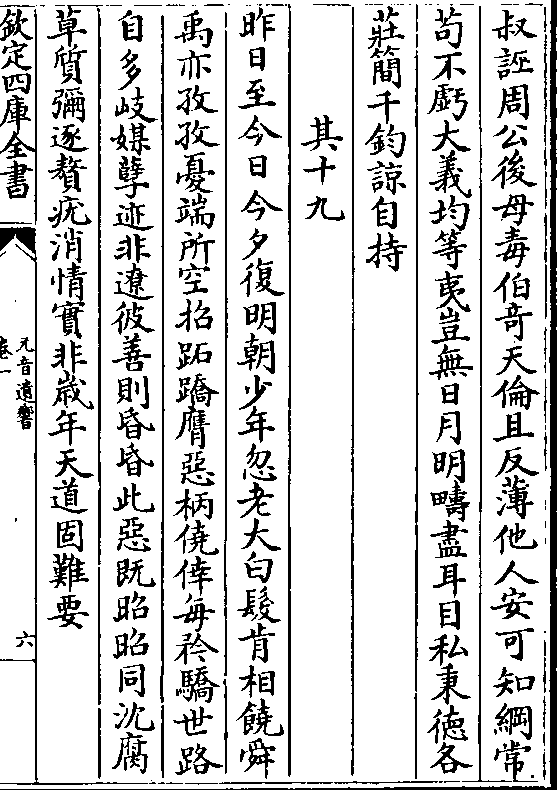 叔誣周公後母毒伯奇天倫且反薄他人安可知綱常
苟不虧大義均等夷豈無日月明疇盡耳目私秉德各
莊簡千鈞諒自持
其十九
昨日至今日今夕復明朝少年忽老大白髮肯相饒舜
禹亦孜孜憂端所空招跖蹻膺惡柄僥倖每矜驕世路
自多岐媒孽迹非遼彼善則昏昏此惡既昭昭同沈腐
草質彌逐贅疣消情實非歲年天道固難要
欽定四庫全書
元音遺響
卷一
六